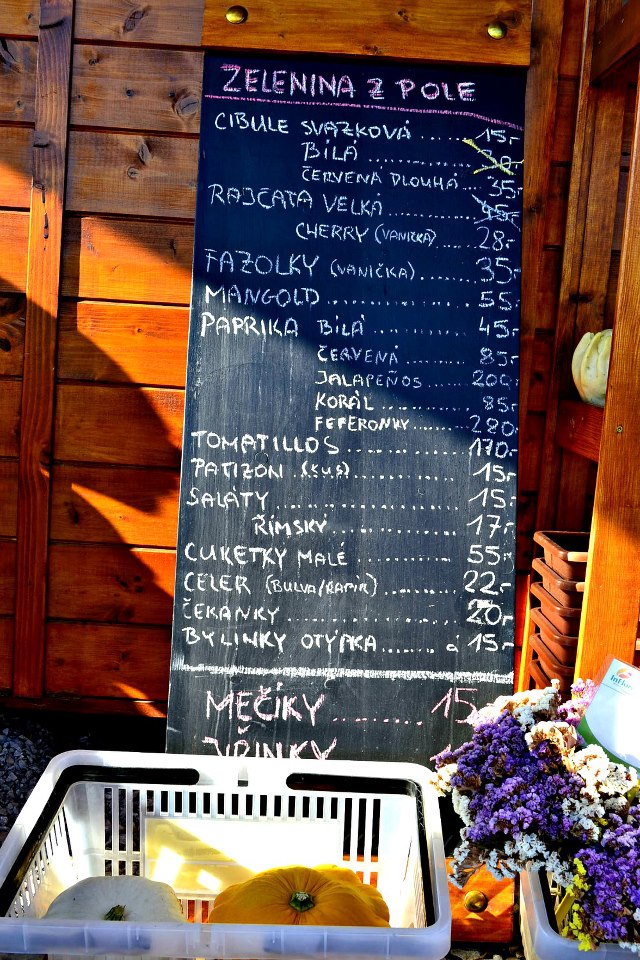 ZELENINA Z POLE
CIBULE SVAZKOVÁ ...... 15,-
BÍLÁ ................ 30,-
ČERVENÁ DLOUHÁ ... 35,-
RAJČATA VELKÁ ............... 45,-
CHERRY (VANIČKA) .... 28,-
FAZOLKY (VANIČKA) ....... 35,-
MANGOLD .................... 55,-
PAPRIKA BÍLÁ ............ 45,-
ČERVENÁ ......... 85,-
JALAPEÑOS ...... 200,-
KORÁL ............ 85,-
FEFERONKY ....... 280,-
TOMATILLOS ............... 170,-
PATIZON (KUS) .............. 15,-
SALÁTY ..................... 15,-
ŘÍMSKÝ ................ 17,-
CUKETKY MALÉ ............ 55,-
CELER (BULVA/ŘAPÍK) ......... 22,-
ČEKANKY .................... 20,-
BYLINKY OTÝPKA ........ á 15,-
MEČÍKY ........ 15
JIŘINKY